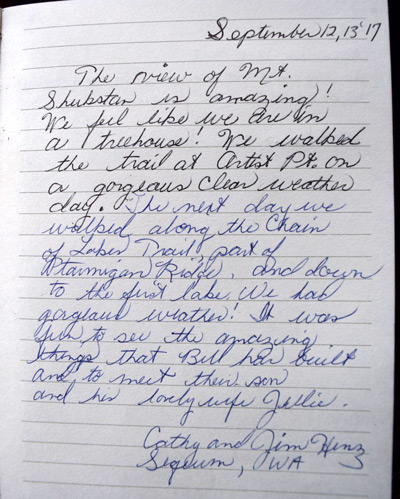 September 12, 13 '17
The view of Mt.
Shukstan is amazing!
We feel like we are in
a treehouse! We walked
the trail at Artist Pt. on
a gorgeous clear weather
day. The next day we
walked along the Chain
of Lakes Trail, part of
Ptarmigan Ridge, and down
to the first lake. We had
gorgeous weather! It was
fun to see the amazing
things that Bill has built
and to meet their son
and his lovely wife Julie.
Cathy and Jim Henz
Sequim, WA